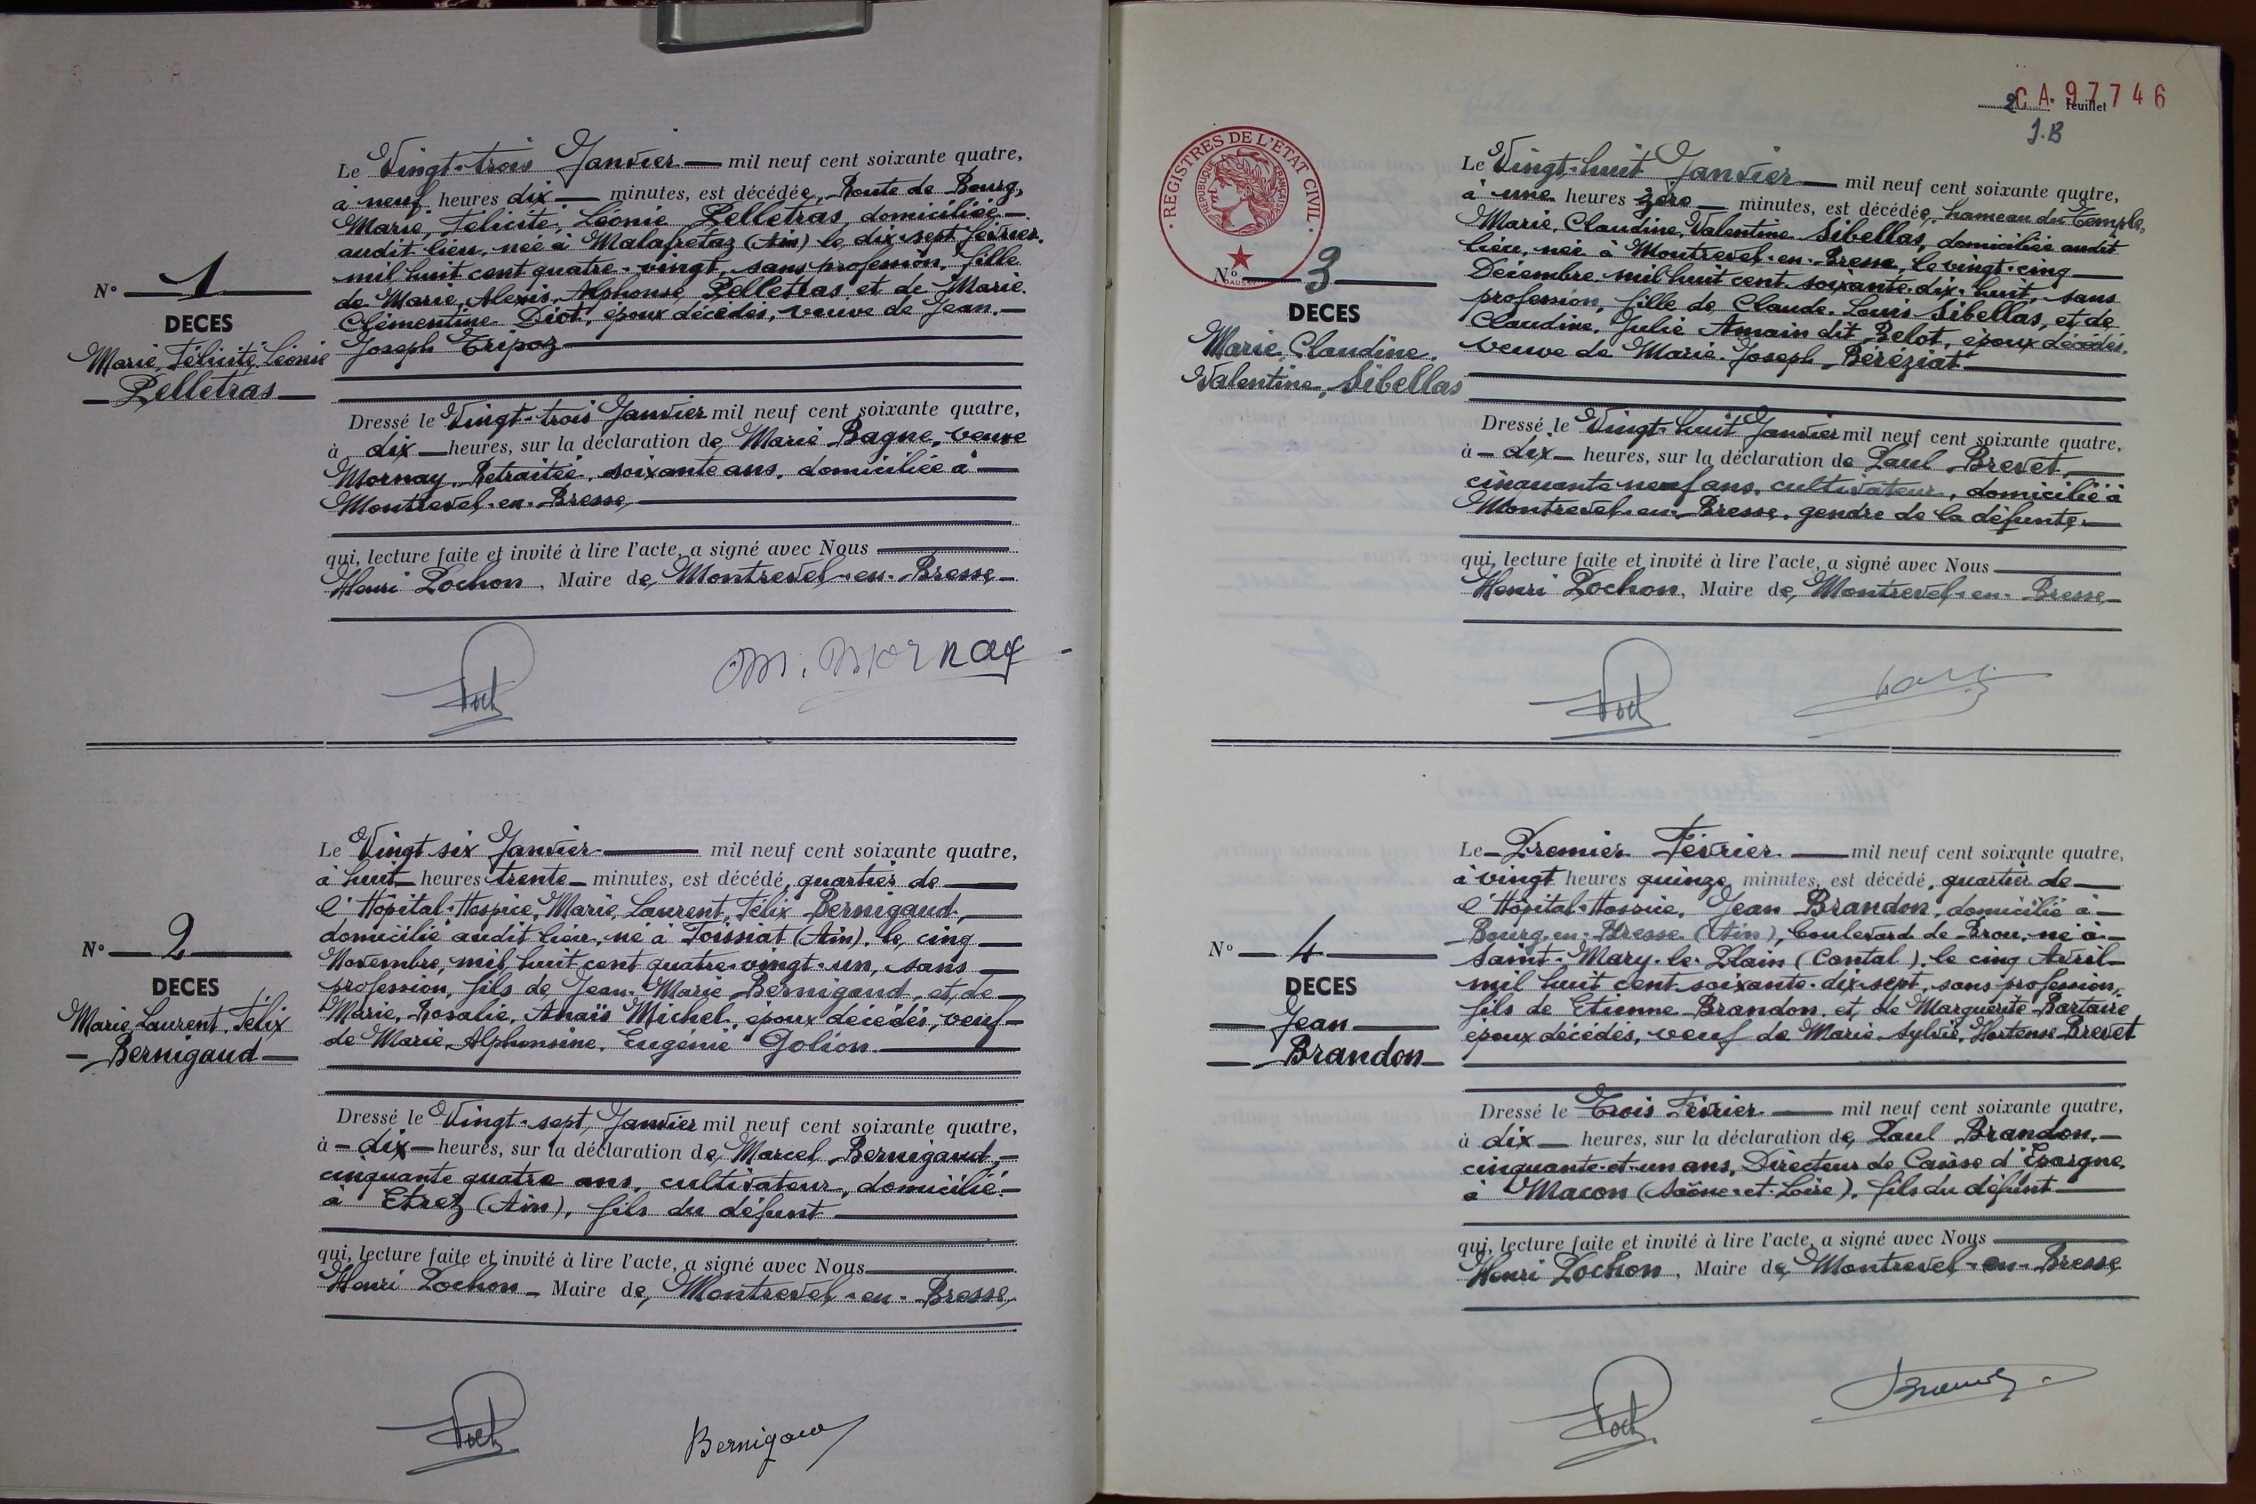 Le Vingt-trois Janvier — mil neuf cent soixante quatre,
à neuf heures dix — minutes, est décédée, Route de Bourg,
Marie, Félicité, Léonie Pelletras, domiciliée —
audit lieu, née à Malafretaz (Ain) le dix-sept février
mil huit cent quatre-vingt, sans profession, fille
de Marie, Alexis, Alphonse Pelletras et de Marie
Clémentine Diot, époux décédés, veuve de Jean —
Joseph Tripoz
N° 1
DECES
Marie, Félicité, Léonie
Pelletras
Dressé le Vingt-trois Janvier mil neuf cent soixante quatre,
à dix — heures, sur la déclaration de Marie Bagne, veuve
Mornay, Retraitée, soixante ans, domiciliée à —
Montrevel-en-Bresse
qui, lecture faite et invité à lire l'acte, a signé avec Nous
Henri Pochon, Maire de Montrevel-en-Bresse
Poch
M. Mornay
Le Vingt six Janvier — mil neuf cent soixante quatre,
à huit — heures trente — minutes, est décédé, quartier de —
l'Hôpital-Hospice, Marie, Laurent, Félix Bernigaud,
domicilié audit lieu, né à Foissiat (Ain), le cinq —
Novembre, mil huit cent quatre-vingt-un, sans —
profession, fils de Jean-Marie Bernigaud, et de —
Marie, Rosalie, Anaïs Michel, époux décédés, veuf —
de Marie, Alphonsine, Eugénie Golion
N° 2
DECES
Marie, Laurent, Félix
Bernigaud
Dressé le Vingt-sept Janvier mil neuf cent soixante quatre,
à — dix — heures, sur la déclaration de Marcel Bernigaud, —
cinquante quatre ans, cultivateur, domicilié —
à Etrez (Ain), fils du défunt
qui, lecture faite et invité à lire l'acte, a signé avec Nous
Henri Pochon — Maire de Montrevel-en-Bresse
Poch
Bernigaud
2e feuillet
CA 97746
J.B
REGISTRES DE L'ETAT CIVIL
REPUBLIQUE FRANÇAISE
Le Vingt-huit Janvier — mil neuf cent soixante quatre,
à une heures zéro — minutes, est décédée, hameau du Temple,
Marie, Claudine, Valentine Sibellas, domiciliée audit
lieu, née à Montrevel-en-Bresse, le vingt-cinq —
Décembre mil huit cent soixante-dix-huit, sans
profession, fille de Claude, Louis Sibellas, et de
Claudine, Julie Amain dit Belot, époux décédés,
veuve de Marie-Joseph Béréziat
N° 3
DECES
Marie, Claudine,
Valentine, Sibellas
Dressé le Vingt-huit Janvier mil neuf cent soixante quatre,
à — dix — heures, sur la déclaration de Paul Brevet, —
cinquante neuf ans, cultivateur, domicilié à
Montrevel-en-Bresse, gendre de la défunte —
qui, lecture faite et invité à lire l'acte, a signé avec Nous
Henri Pochon, Maire de Montrevel-en-Bresse
Poch
Le — Premier Février — mil neuf cent soixante quatre,
à vingt heures quinze minutes, est décédé, quartier de —
l'Hôpital-Hospice, Jean Brandon, domicilié à —
Bourg-en-Bresse (Ain), boulevard de Brou, né à —
Saint-Mary-le-Plain (Cantal), le cinq Avril —
mil huit cent soixante-dix-sept, sans profession,
fils de Etienne Brandon et de Marguerite Bartaire
époux décédés, veuf de Marie, Sylvie, Hortense Brevet
N° 4
DECES
Jean
Brandon
Dressé le Trois Février — mil neuf cent soixante quatre,
à dix — heures, sur la déclaration de Paul Brandon, —
cinquante-et-un ans, Directeur de Caisse d'Epargne,
à Macon (Saône-et-Loire), fils du défunt
qui, lecture faite et invité à lire l'acte, a signé avec Nous
Henri Pochon, Maire de Montrevel-en-Bresse
Poch